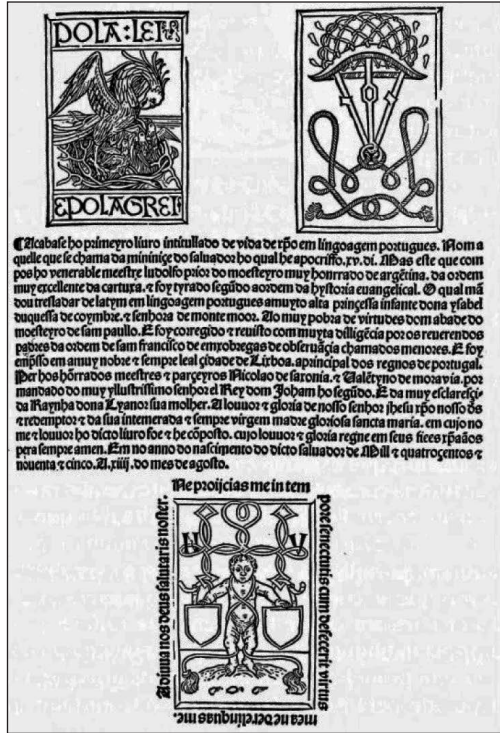 POLA : LEI
EPOLAGREI
Acabase ho primeyro liuro intitullado de vida de xp̃o em lingoagem portugues. Nom a
quelle que se chama da mininiçe do saluador ho qual he apocriffo. xv. di. Mas este que com
pos ho venerable meestre ludolfo prior do moesteyro muy honrrado de argẽtina. da ordem
muy excellente da cartuxa. ⁊ foy tyrado segũdo aordem da hystoria euangelical. O qual mã
dou tresladar de latym em lingoagem portugues amuyto alta prinçessa infante dona ysabel
duquessa de coymbre. ⁊ senhora de monte moor. Ao muy pobra de virtudes dom abade do
moesteyro de sam paullo. E foy corregido ⁊ reuisto com muyta dilligẽcia por os reuerendos
padres da ordem de sam francisco de emxobregas de obseruãçia chamados menores. E foy
empsso em amuy nobre ⁊ sempre leal çidade de Lixboa. aprincipal dos regnos de portugal.
Per hos hõrrados meestres ⁊ parçeyros Nicolao de saxonia. ⁊ Ualẽtyno de morauia. por
mandado do muy yllustrissimo senhor el Rey dom Joham ho segũdo. E da muy esclaresçi
da Raynha dona Lyanor sua molher. A louuor ⁊ gloria de nosso senhor jhesu xp̃o nosso d̃s
⁊ redemptor ⁊ da sua intemerada ⁊ sempre virgem madre gloriosa sancta maria. em cujo no
me ⁊ louuor ho dicto liuro foe ⁊ he cõposto. cujo louuor ⁊ gloria regne em seus fiees xp̃aãos
pera sempre amen. Em no anno do nasçimento do dicto saluador de Mill ⁊ quatroçentos ⁊
nouenta ⁊ cinco. A. xiiij. do mes de agosto.
Ne proijcias me in tem
pore senectutis cum defecerit virtus
mea ne derelinquas me.
Adiuua nos deus salutaris noster.
N V